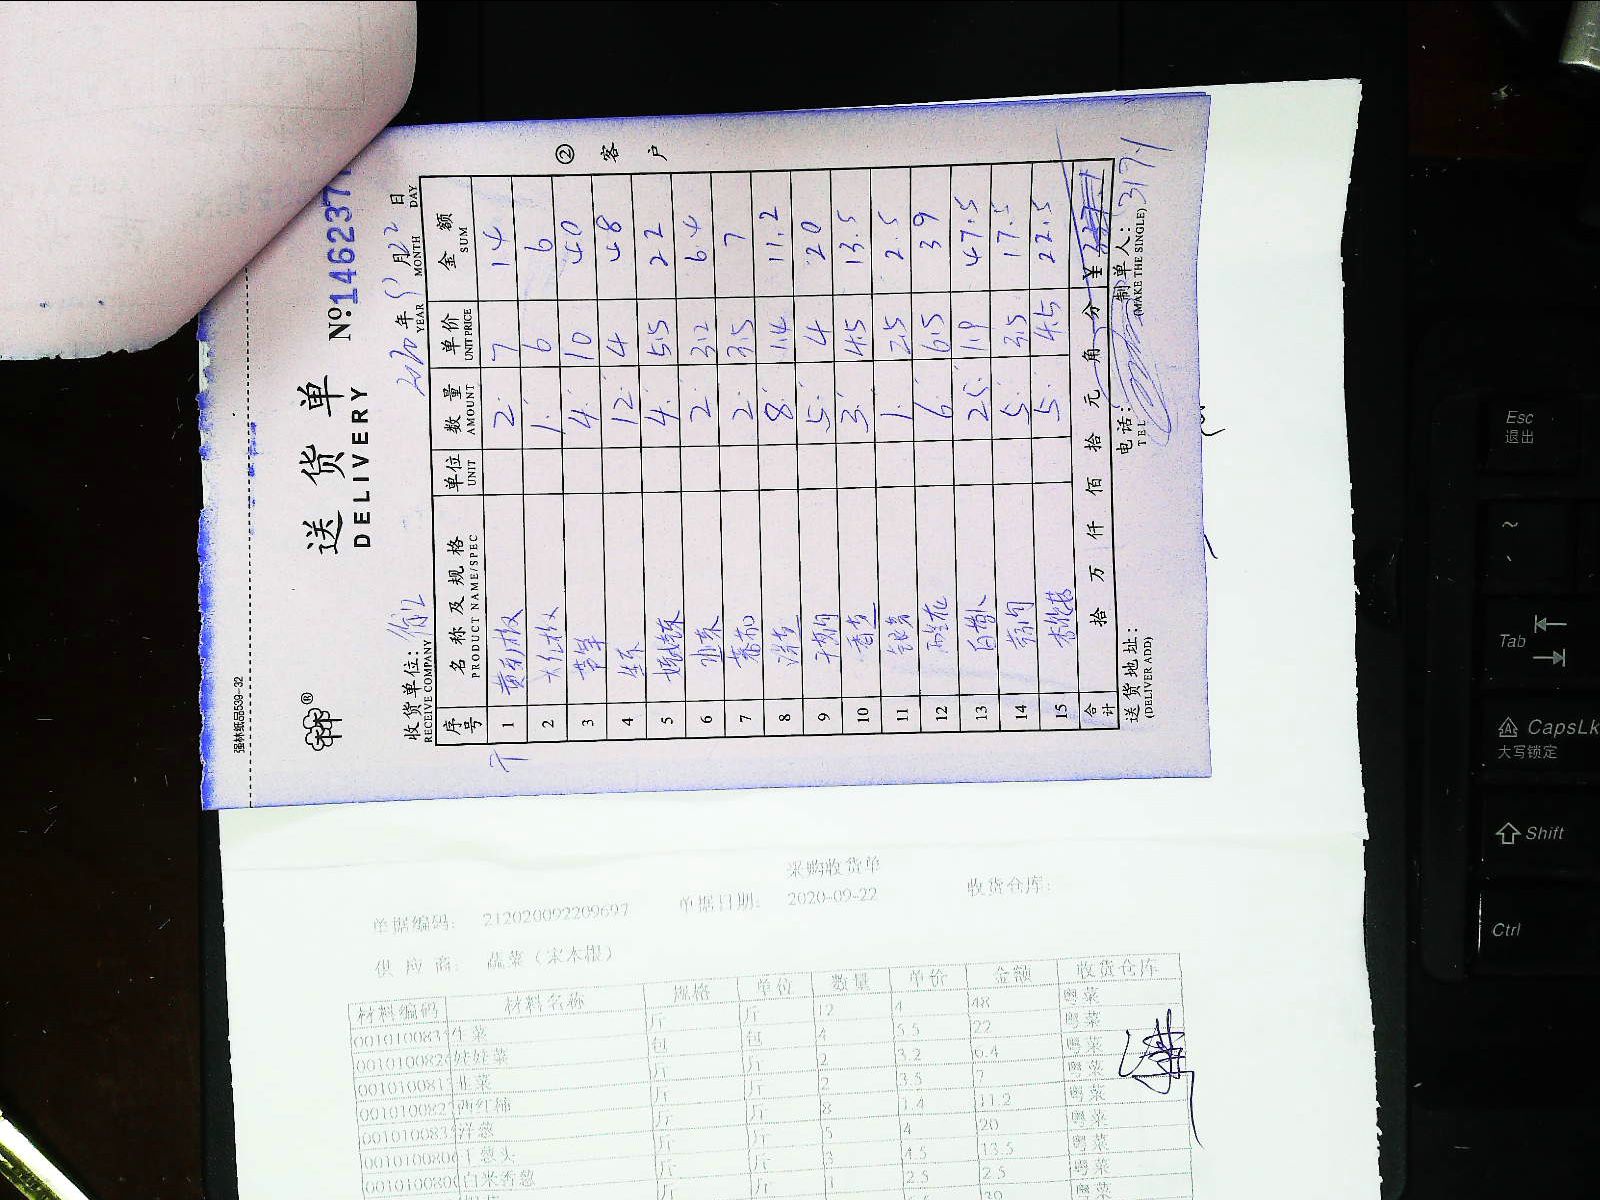 强林纸品539-32
送货单
DELIVERY
№1462371
② 客户
收货单位：
RECEIVE COMPANY
2020年9月22日
YEAR MONTH DAY
序号 名称及规格 单位 数量 单价 金额
PRODUCT NAME/SPEC UNIT AMOUNT UNIT PRICE SUM
1 2 7 14
2 大红椒 1 6 6
3 4 10 40
4 生菜 12 4 48
5 娃娃菜 4 5.5 22
6 韭菜 2 3.2 6.4
7 蕃茄 2 3.5 7
8 洋葱 8 1.4 11.2
9 干葱肉 5 4 20
10 香葱 3 4.5 13.5
11 银芽 1 2.5 2.5
12 西兰花 6 6.5 39
13 白萝卜 25 1.9 47.5
14 5 3.5 17.5
15 5 4.5 22.5
合计 拾 万 仟 佰 拾 元 角 分 ¥
317.1
送货地址：
(DELIVER ADD)
电话：
TEL
制单人：
(MAKE THE SINGLE)
采购收货单
单据编码： 212020092209697 单据日期： 2020-09-22 收货仓库：
供应商： 蔬菜（宋本银）
材料编码 材料名称 规格 单位 数量 单价 金额 收货仓库
001010083 生菜 斤 斤 12 4 48 粤菜
001010082 娃娃菜 包 包 4 5.5 22 粤菜
001010081 韭菜 斤 斤 2 3.2 6.4 粤菜
001010082 西红柿 斤 斤 2 3.5 7 粤菜
001010083 洋葱 斤 斤 8 1.4 11.2 粤菜
001010080 干葱头 斤 斤 5 4 20 粤菜
001010080 白米香葱 斤 斤 3 4.5 13.5 粤菜
斤 斤 1 2.5 2.5 粤菜
39 粤菜
Esc
退出
~
Tab
CapsLk
大写锁定
Shift
Ctrl